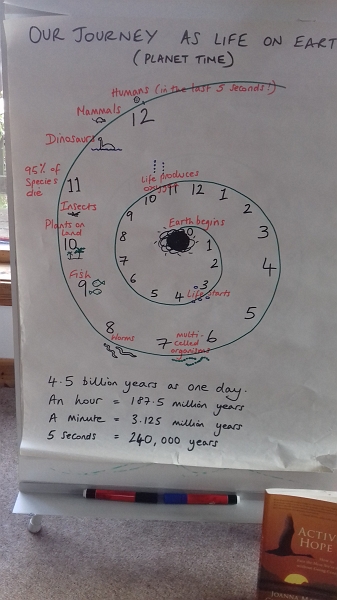 OUR JOURNEY AS LIFE ON EART
(PLANET TIME)
Humans (in the last 5 seconds!)
Mammals
12
Dinosaurs
95% of
Species
die
11
Insects
Plants on
Land
10
Fish
9
8
Worms
7
Multi-
celled
organisms
6
5
4
3
2
1
12
11
Life produces
oxygen
10
9
8
7
6
5
4
3
Life starts
2
1
Earth begins
4.5 billion years as one day.
An hour = 187.5 million years
A minute = 3.125 million years
5 seconds = 240,000 years
ACTIV
HOPE
JOANNA MA